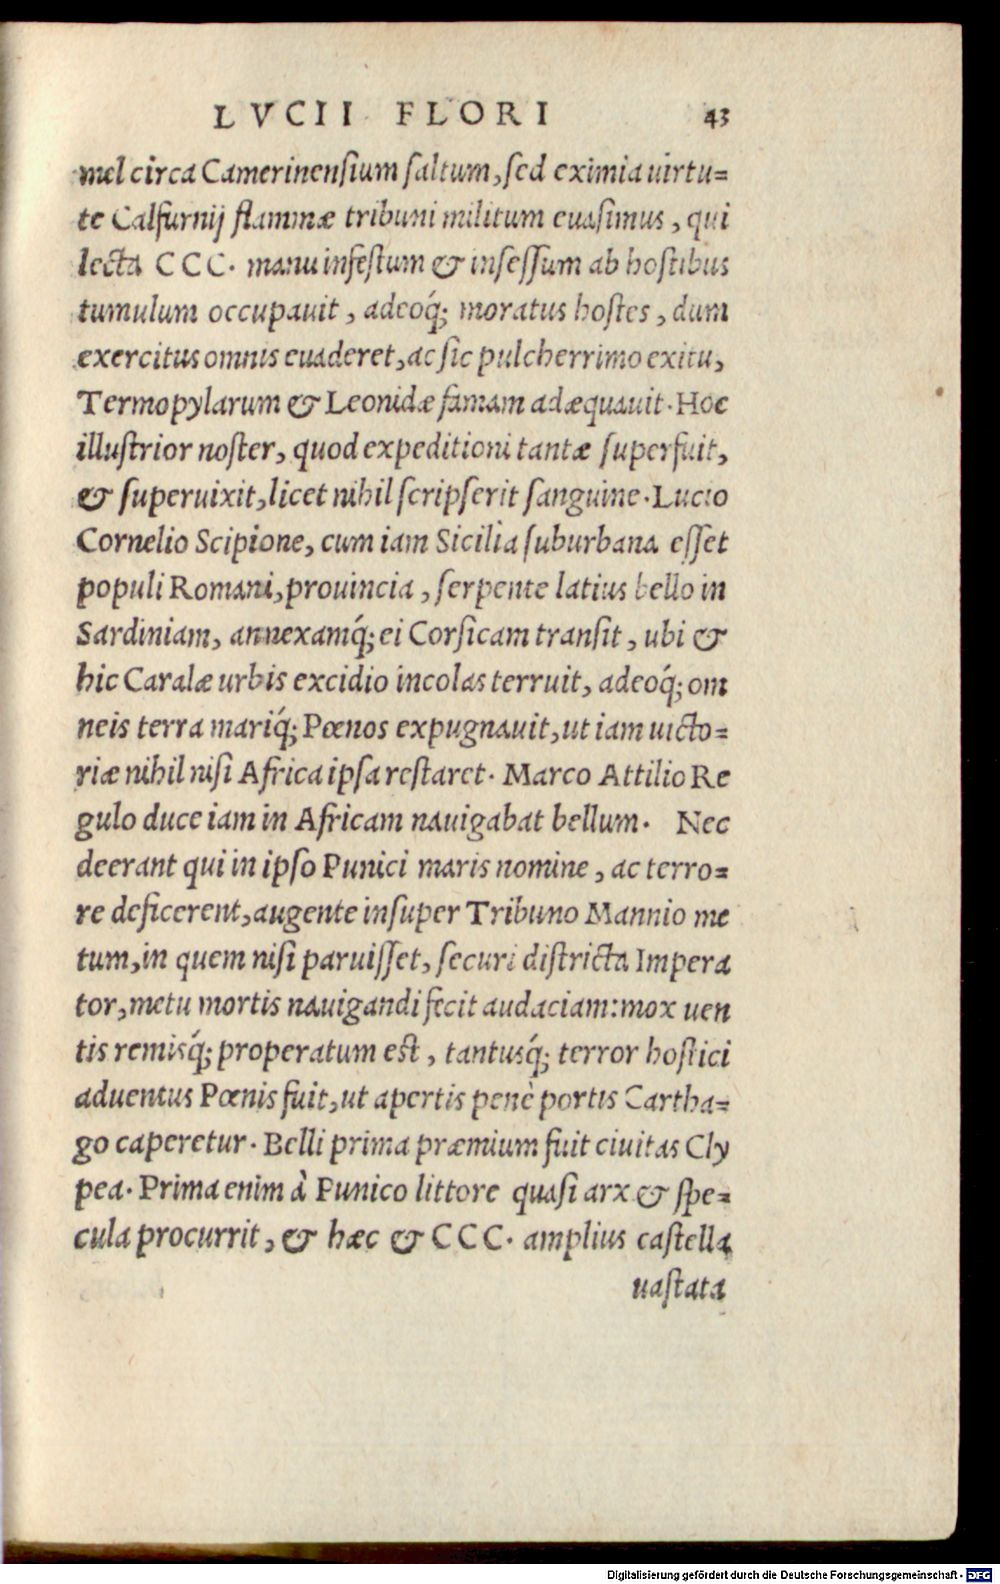 LVCII FLORI 43
mel circa Camerinensium saltum, sed eximia uirtu=
te Calfurnij flammæ tribuni militum euasimus, qui
lecta CCC. manu infestum & insessum ab hostibus
tumulum occupauit, adeoq́; moratus hostes, dum
exercitus omnis euaderet, ac sic pulcherrimo exitu,
Termopylarum & Leonidæ famam adæquauit. Hoc
illustrior noster, quod expeditioni tantæ superfuit,
& superuixit, licet nihil scripserit sanguine. Lucio
Cornelio Scipione, cum iam Sicilia suburbana esset
populi Romani, prouincia, serpente latius bello in
Sardiniam, annexamq́; ei Corsicam transit, ubi &
hic Caralæ urbis excidio incolas terruit, adeoq́; om
neis terra mariq́; Pœnos expugnauit, ut iam uicto=
riæ nihil nisi Africa ipsa restaret. Marco Attilio Re
gulo duce iam in Africam nauigabat bellum. Nec
deerant qui in ipso Punici maris nomine, ac terro=
re deficerent, augente insuper Tribuno Mannio me
tum, in quem nisi paruisset, securi districta Impera
tor, metu mortis nauigandi fecit audaciam: mox uen
tis remisq́; properatum est, tantusq́; terror hostici
aduentus Pœnis fuit, ut apertis penè portis Cartha=
go caperetur. Belli prima præmium fuit ciuitas Cly
pea. Prima enim à Punico littore quasi arx & spe=
cula procurrit, & hæc & CCC. amplius castella
uastata
Digitalisierung gefördert durch die Deutsche Forschungsgemeinschaft - DFG